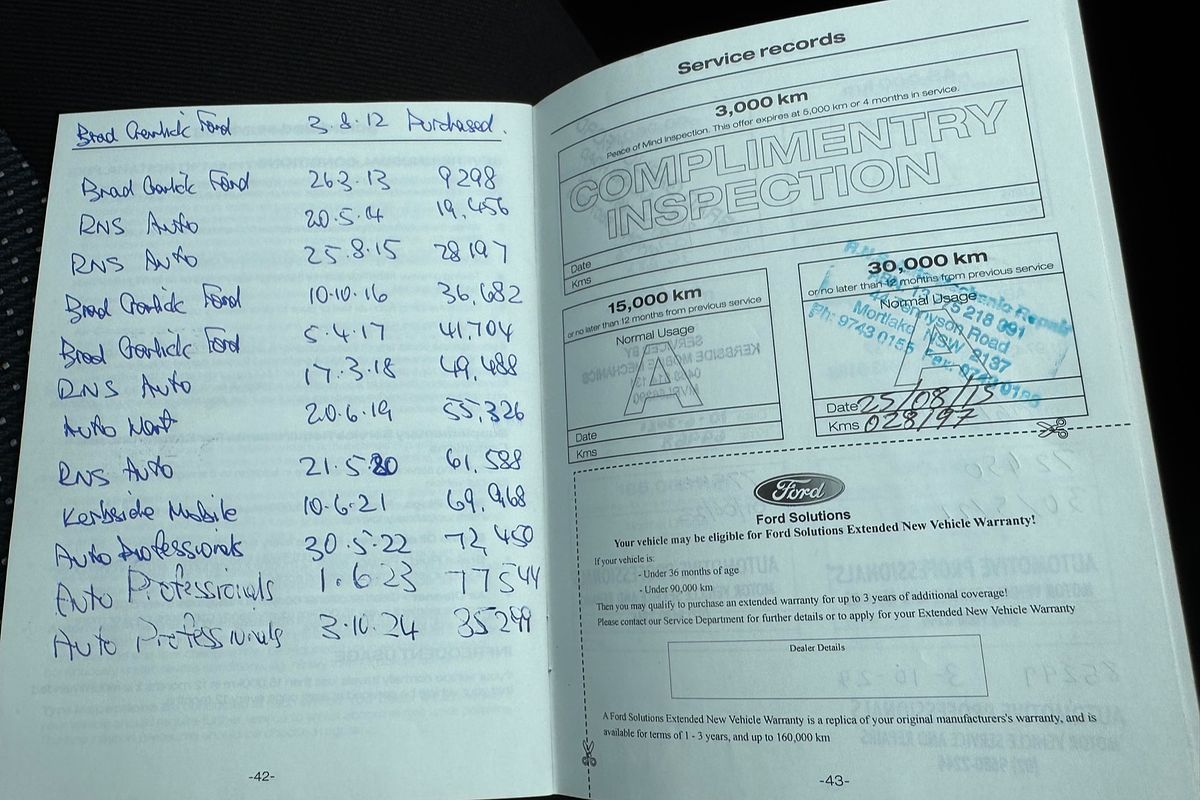 Brad Garlick Ford 3.8.12 Purchased.
Brad Garlick Ford 26.3.13 9298
RNS Auto 20.5.14 19,456
RNS Auto 25.8.15 28197
Brad Garlick Ford 10.10.16 36,682
Brad Garlick Ford 5.4.17 41,704
RNS Auto 17.3.18 49,488
Auto Mart 20.6.19 55,326
RNS Auto 21.5.20 61,588
Kerbside Mobile 10.6.21 69,968
Auto Professionals 30.5.22 72,450
Auto Professionals 1.6.23 77544
Auto Professionals 3.10.24 35299
-42-
Service records
3,000 km
Peace of Mind Inspection. This offer expires at 5,000 km or 4 months in service.
COMPLIMENTRY
INSPECTION
Date
Kms
15,000 km
or no later than 12 months from previous service
Normal Usage
A
Date
Kms
30,000 km
or no later than 12 months from previous service
Normal Usage
A
Mortlake NSW 2137
Ph: 9743 0155 Fax: 9743 0188
Date 25/08/15
Kms 028197
Ford
Ford Solutions
Your vehicle may be eligible for Ford Solutions Extended New Vehicle Warranty!
If your vehicle is:
- Under 36 months of age
- Under 90,000 km
Then you may qualify to purchase an extended warranty for up to 3 years of additional coverage!
Please contact our Service Department for further details or to apply for your Extended New Vehicle Warranty
Dealer Details
A Ford Solutions Extended New Vehicle Warranty is a replica of your original manufacturers's warranty, and is
available for terms of 1 - 3 years, and up to 160,000 km
-43-